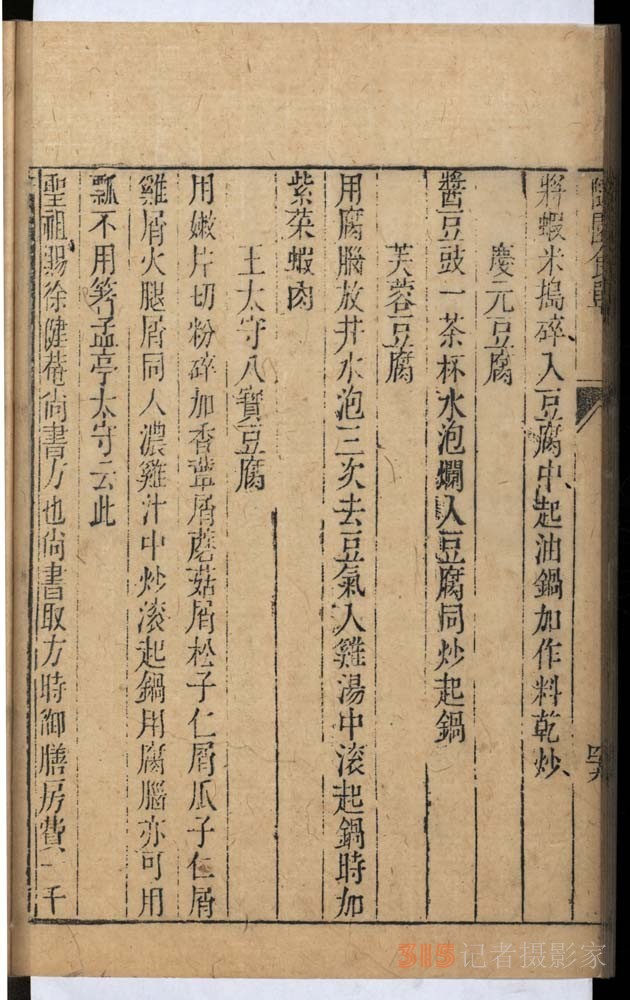 將蝦米搗碎入豆腐中起油鍋加作料乾炒
慶元豆腐
醬豆豉一茶杯水泡爛入豆腐同炒起鍋
芙蓉豆腐
用腐腦放井水泡三次去豆氣入雞湯中滚起鍋時加
紫菜蝦肉
王太守八寶豆腐
用嫩片切粉碎加香蕈屑蘑菇屑松子仁屑瓜子仁屑
雞屑火腿屑同入濃雞汁中炒滚起鍋用腐腦亦可用
瓢不用箸孟亭太守云此
聖祖賜徐健菴尚書方也尚書取方時御膳房費一千
315记者摄影家